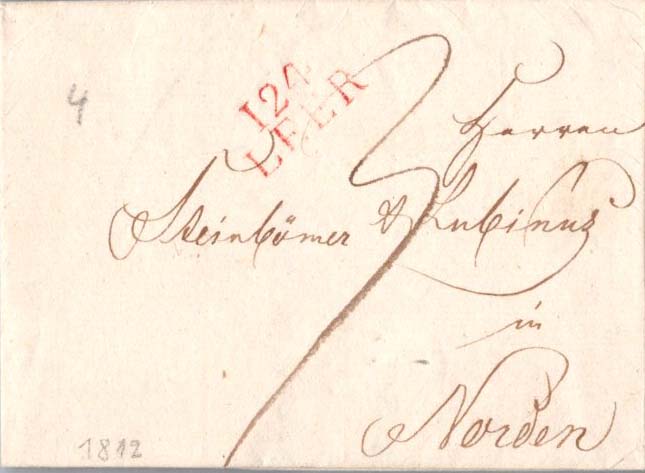 4
124
LEER
3
Herren
Steinbömer & Lubinus
in
Norden
1812